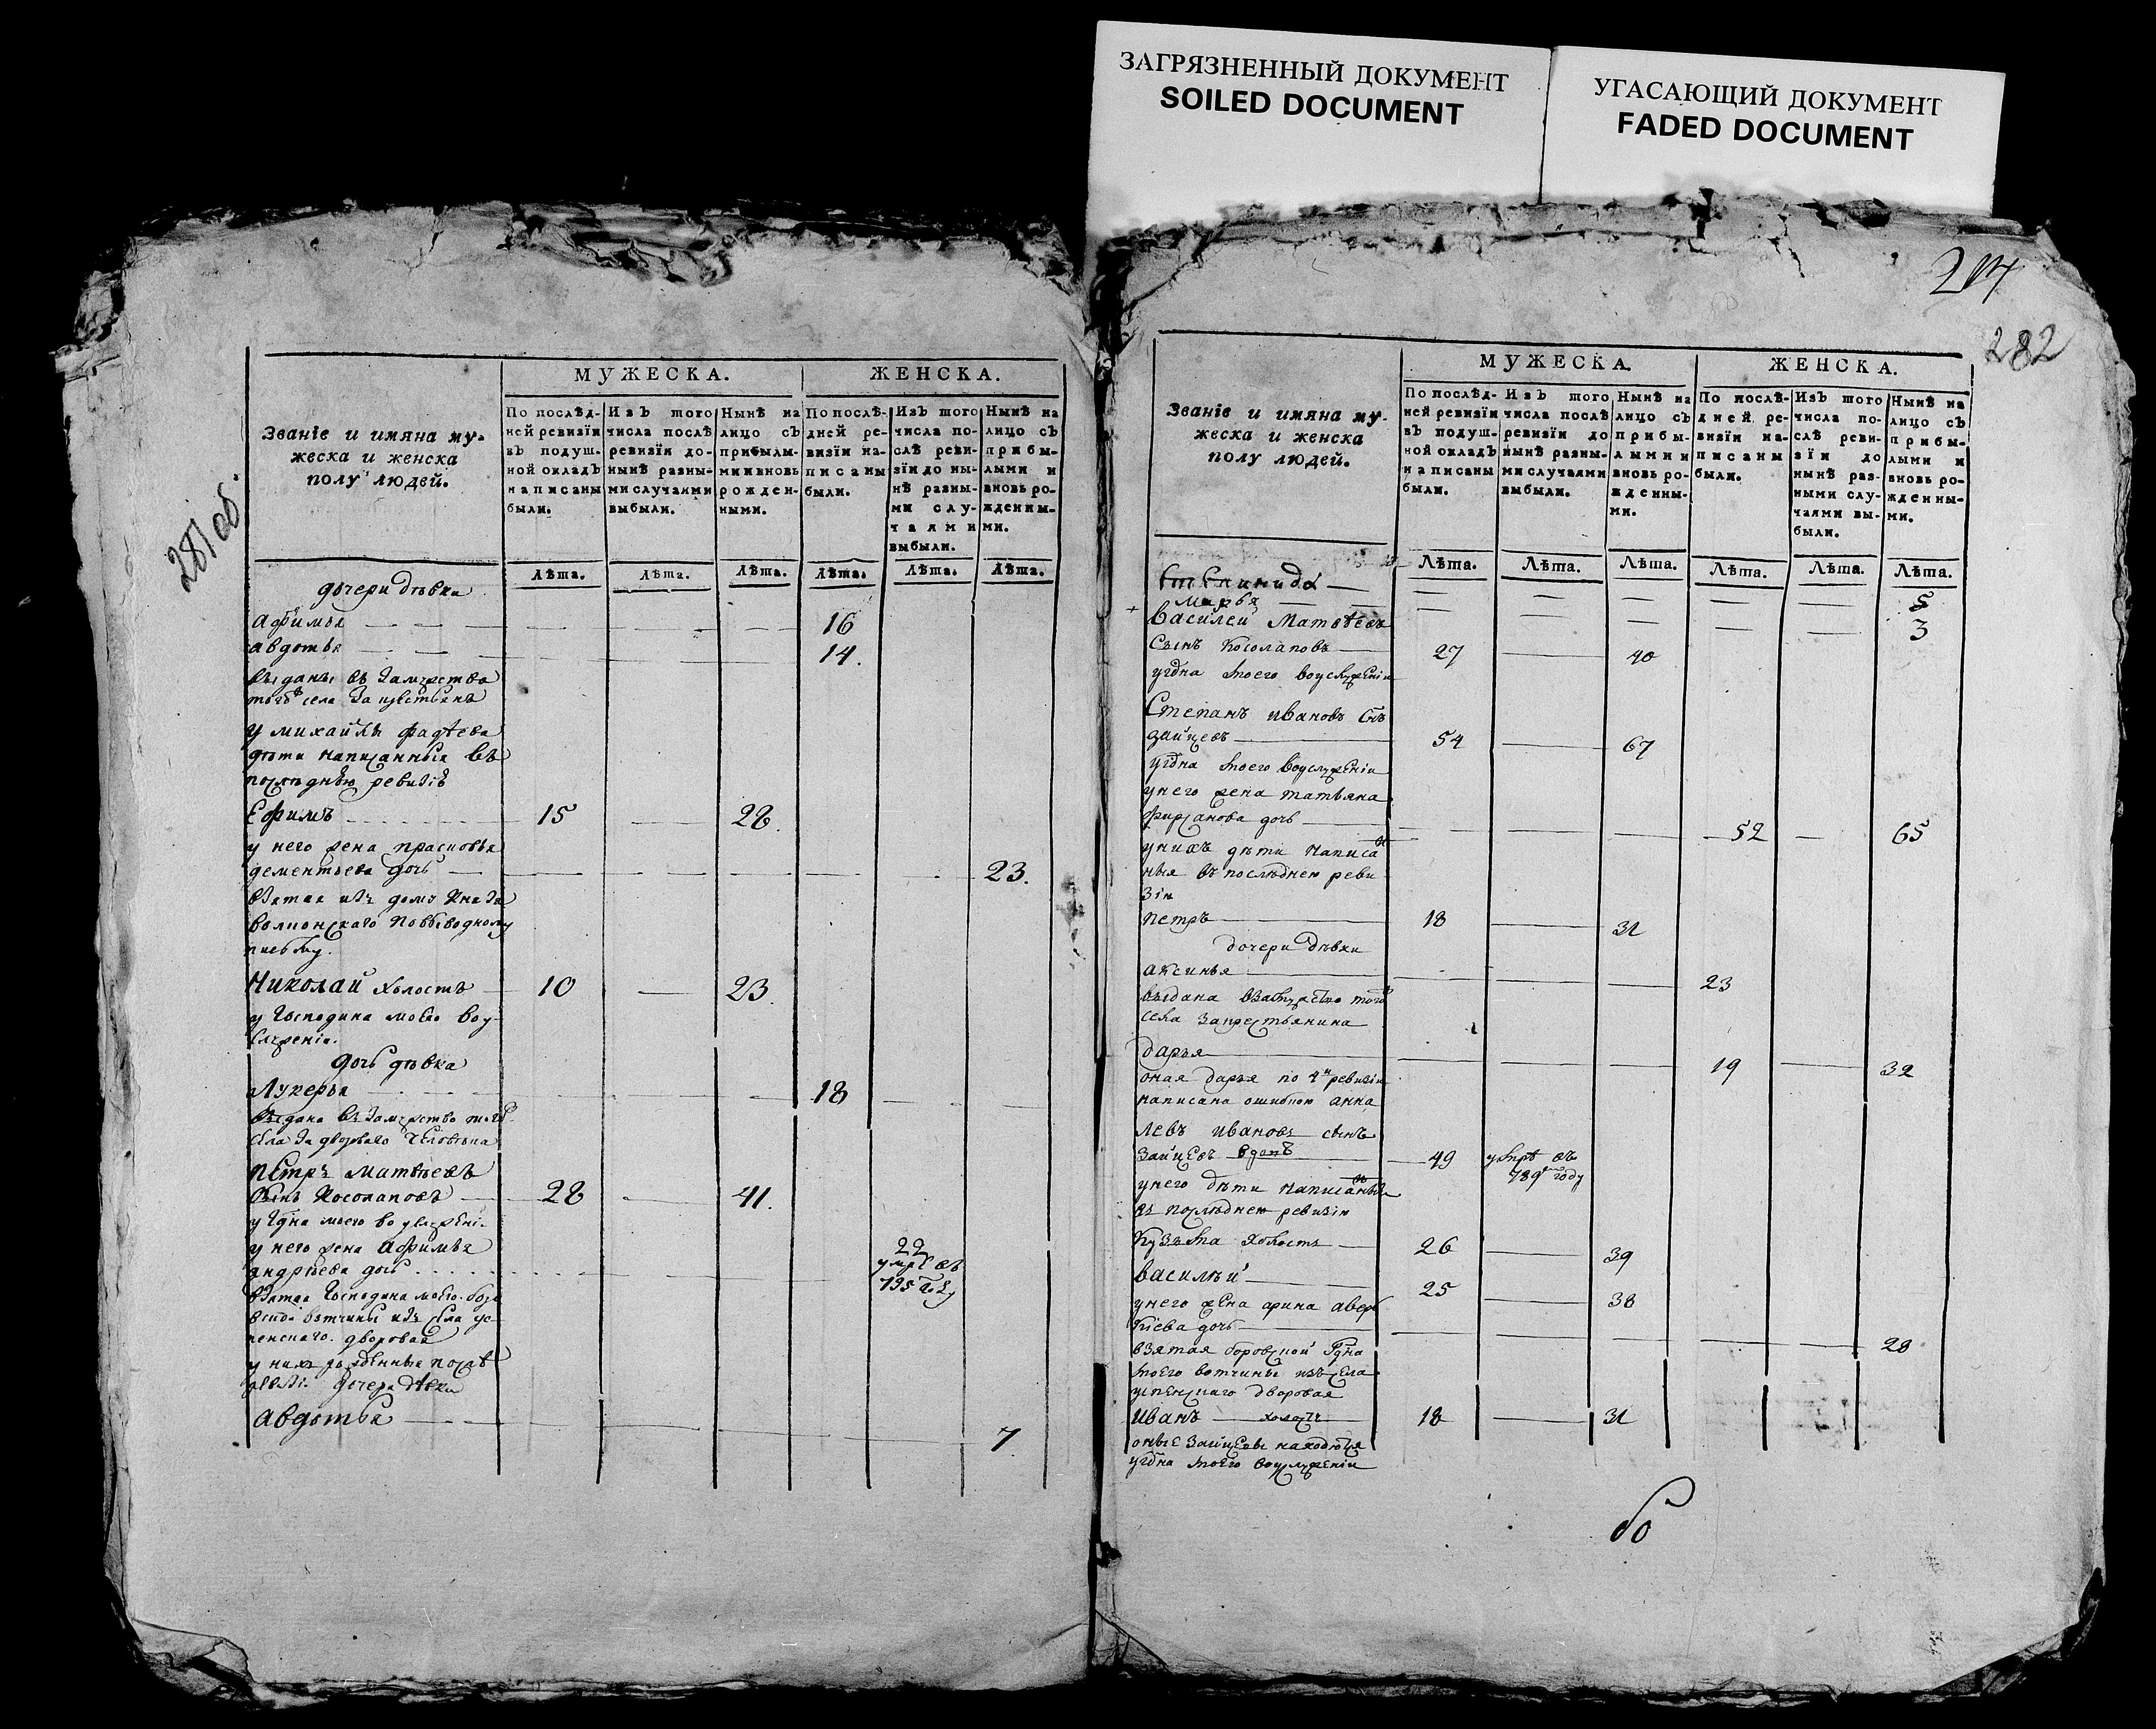 ЗАГРЯЗНЕННЫЙ ДОКУМЕНТ
SOILED DOCUMENT
УГАСАЮЩИЙ ДОКУМЕНТ
FADED DOCUMENT
281 об.
Званіе и имяна му-
жеска и женска
полу людей.
МУЖЕСКА.
ЖЕНСКА.
По послѣд-
ней ревизіи
въ подуш-
ной окладъ
написаны
были.
Изъ того
числа послѣ
ревизіи до-
нынѣ разны-
ми случаями
выбыли.
Нынѣ на
лицо съ
прибылы-
ми и вновь
рожден-
ными.
По послѣ-
дней ре-
визіи на-
писаны
были.
Изъ того
числа по-
слѣ реви-
зіи до ны-
нѣ разны-
ми слу-
чаями
выбыли.
Нынѣ на
лицо съ
прибы-
лыми и
вновь ро-
жденны-
ми.
Лѣта. Лѣта. Лѣта. Лѣта. Лѣта. Лѣта.
дочери дѣвки
Афимья 16
авдотья 14.
выданы въ замужство
того села за крестьянъ
у михайлы фадѣева
дѣти написанныя въ
послѣднѣю ревизіѣ
Ефимъ 15 28.
у него жена прасковья
дементьева дочь 23.
взятая изъ дому князя
волконскаго по выводному
письму.
Николай холостъ 10 23.
у господина моего воу-
служеніи.
дочь дѣвка
Лукерья 18
выдана въ замужство того
села за двороваго человѣка
петръ матвѣевъ
сынъ Косолаповъ 28 41.
у гдна моего во услужені.
у него жена афимья
андрѣева дочь 22
умре въ
795 году
взятая господина моего
вотчины изъ села ус
пенскаго. дворовая
у нихъ рожденные послѣ
ревизіи дочери дѣвки
авдотья 7
214
282
Званіе и имяна му-
жеска и женска
полу людей.
МУЖЕСКА.
ЖЕНСКА.
По послѣд-
ней ревизіи
въ подуш-
ной окладъ
написаны
были.
Изъ того
числа послѣ
ревизіи до
нынѣ разны-
ми случаями
выбыли.
Нынѣ на
лицо съ
прибы-
лыми и
вновь ро-
жденны-
ми.
По послѣ-
дней ре-
визіи на-
писаны
были.
Изъ того
числа по-
слѣ реви-
зіи до
нынѣ раз-
ными слу-
чаями вы-
были.
Нынѣ на
лицо съ
прибы-
лыми и
вновь ро-
жденны-
ми.
Лѣта. Лѣта. Лѣта. Лѣта. Лѣта. Лѣта.
Степанида 5
марья 3
василей Матвѣевъ
сынъ Косолаповъ 27 40
у гдна моего воуслуженіи
Степанъ ивановъ снъ
зайцевъ 54 67
у гдна моего воуслуженіи
у него жена татьяна
фирсанова дочь 52 65
у нихъ дѣти написа
ныя въ послѣднею реви
зіи
петръ 18 31
дочери дѣвки
аксинья 23
выдана взамужство того
села за крестьянина
дарья 19 32
оная дарья по 4й ревизіи
написана ошибкою анна
левъ ивановъ сынъ
зайцевъ вдовъ 49 умре въ
789м году
у него дѣти написаныя
въ послѣднею ревизію
Кузьма холостъ 26 39
василѣй 25 38
у него жена арина авер
кіева дочь 28
взятая боровской гдна
моего вотчины изъ села
успенскаго дворовая
иванъ холостъ 18 31
оные зайцевы находются
у гдна моего воуслуженіи